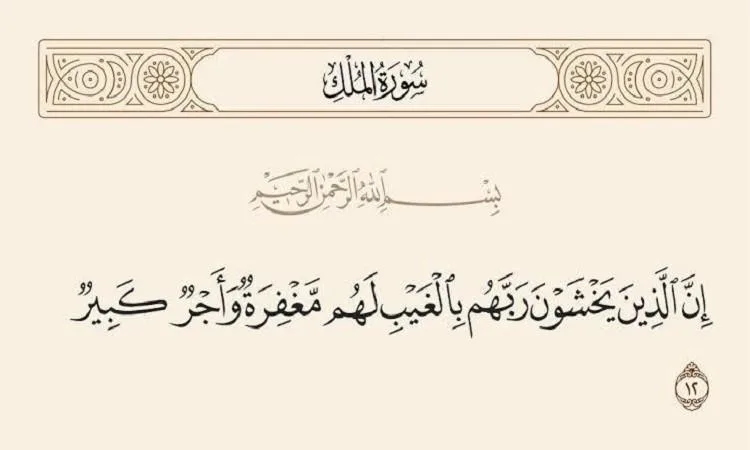 سُورَةُ الْمُلْكِ
بِسْمِ ٱللَّهِ ٱلرَّحْمَٰنِ ٱلرَّحِيمِ
إِنَّ ٱلَّذِينَ يَخْشَوْنَ رَبَّهُم بِٱلْغَيْبِ لَهُم مَّغْفِرَةٌ وَأَجْرٌ كَبِيرٌ
١٢